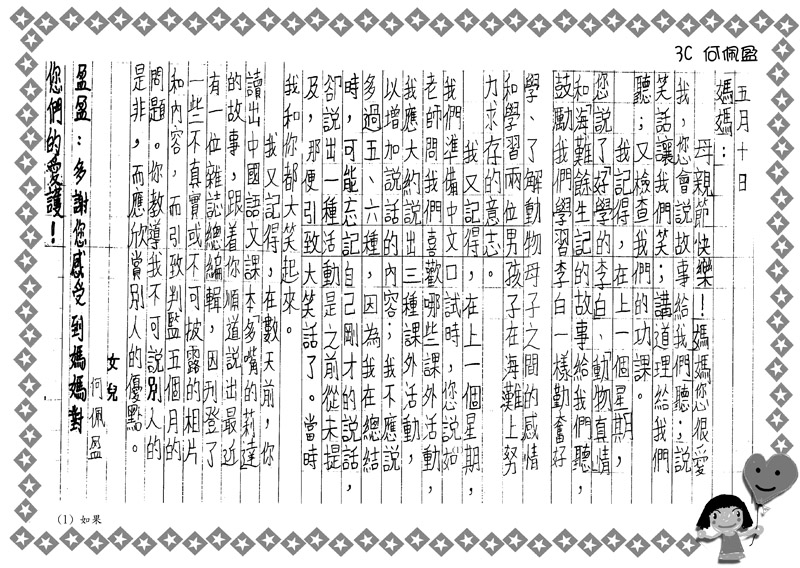 3C 何佩盈
五月十日
媽媽：
母親節快樂！媽媽您很愛
我，您會說故事給我們聽；說
笑話讓我們笑；講道理給我們
聽；又檢查我們的功課。
我記得，在上一個星期，
您說了「好學的李白」、「動物真情」
和「海難餘生記」的故事給我們聽，
鼓勵我們學習李白一樣勤奮好
學、了解動物母子之間的感情
和學習兩位男孩子在海灘上努
力求存的意志。
我又記得，在上一個星期，
我們準備中文口試時，您說「如(1)
老師問我們喜歡哪些課外活動，
我應大約說出三種課外活動，
以增加說話的內容；我不應說
多過五、六種，因為我在總結
時，可能忘記自己剛才的說話，
卻說出一種活動是之前從未提
及，那便引致大笑話了。當時
我和你都大笑起來。
我又記得，在數天前，你
讀出中國語文課本「多嘴的莉達」
的故事，跟着你順道說出最近
有一位雜誌總編輯，因刊登了
一些不真實或不可披露的相片
和內容，而引致判監五個月的
問題。你教導我不可說別人的
是非，而應欣賞別人的優點。
女兒
何佩盈
盈盈：多謝您感受到媽媽對
您們的愛護！
(1) 如果